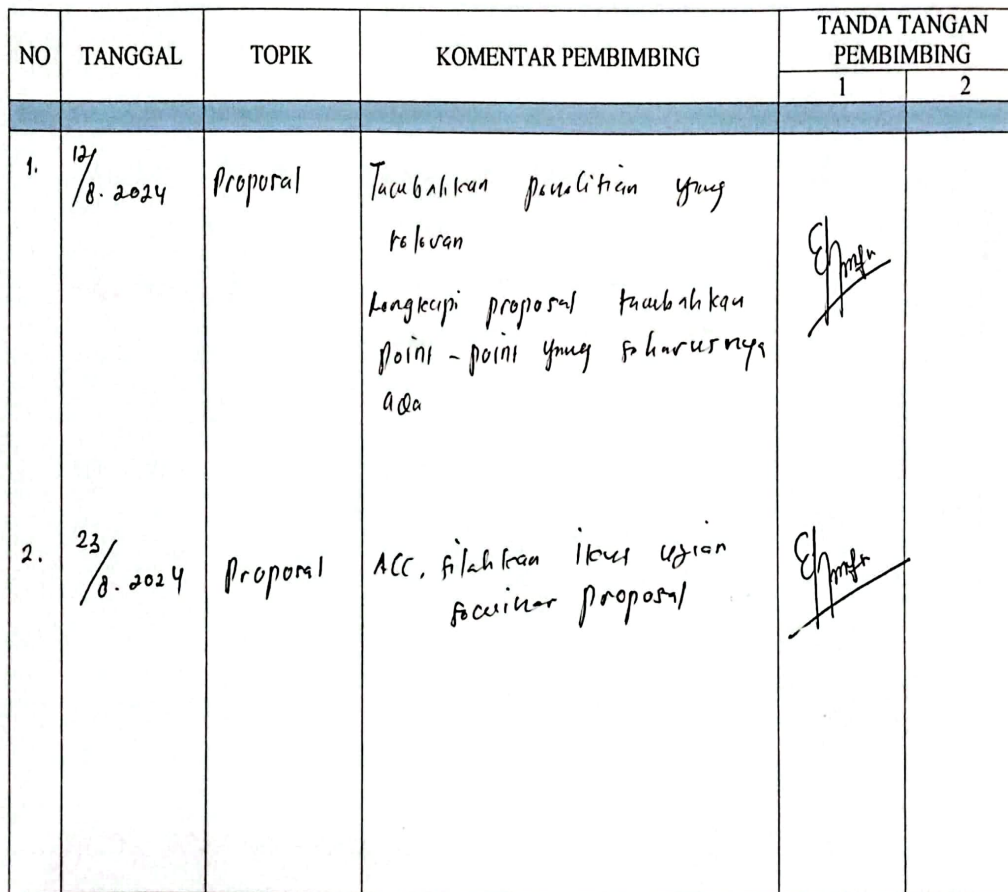 NO TANGGAL TOPIK KOMENTAR PEMBIMBING TANDA TANGAN PEMBIMBING
1 2
1. 12/8.2024 Proposal Tambahkan penelitian yang
relevan
Lengkapi proposal tambahkan
point - point yang seharusnya
ada
2. 23/8.2024 Proposal ACC, silahkan ikut ujian
seminar proposal